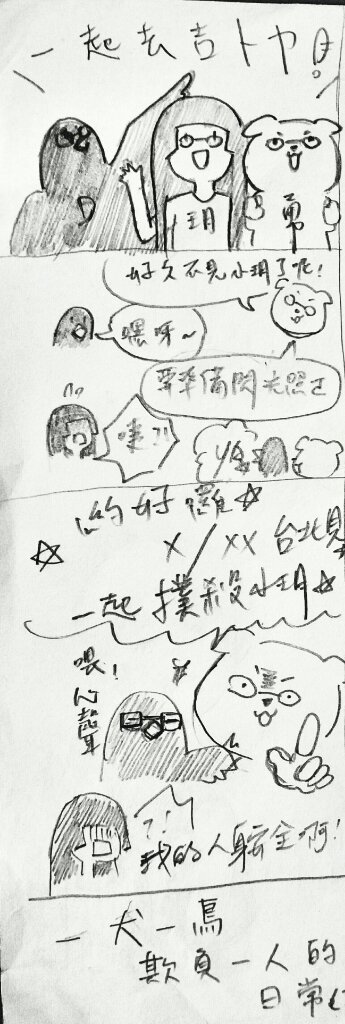 一起去吉卜力!
玥
勇
好久不見小玥了呢!
嘿呀~
要準備閃光照正
哇?!
的好
X/XX 台北見
一起撲殺小玥
喂!
心聲
?!
我的人身安全啊!
一犬一鳥
欺負一人的
日常